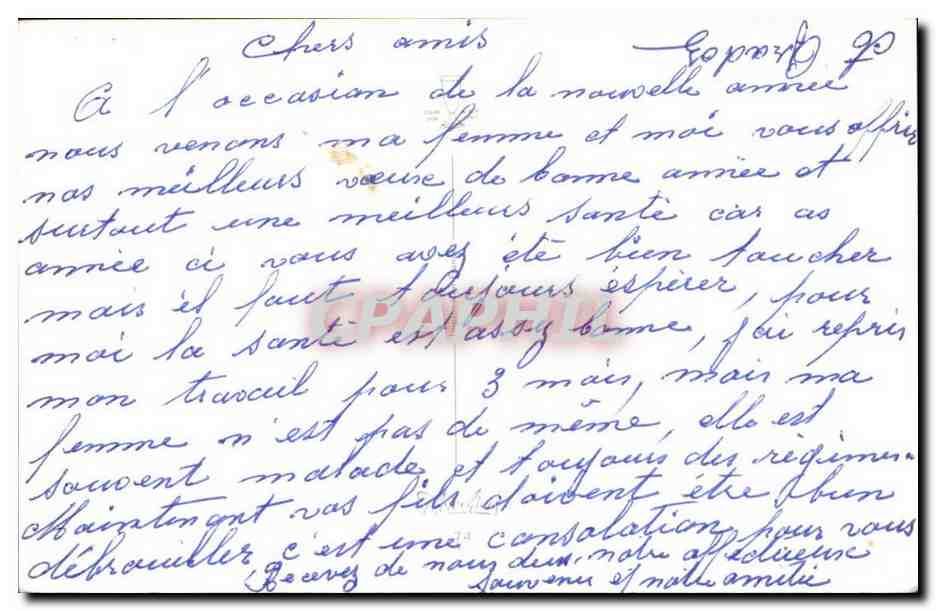 Chers amis
A l'occasion de la nouvelle année
nous venons ma femme et moi vous offrir
nos meilleurs vœux de bonne année et
surtout une meilleurs santé car as
année ci vous avez été bien toucher
mais il faut toujours éspérer, pour
moi la santé est assez bonne, j'ai repris
mon travail pour 3 mois, mais ma
femme n'est pas de même, elle est
souvent malade et toujours des régimes.
Maintenant vos fils doivent être bien
débrouiller c'est une consolation pour vous
Recevez de nous deux notre affectueux
souvenir et notre amitié
CPAPHIL